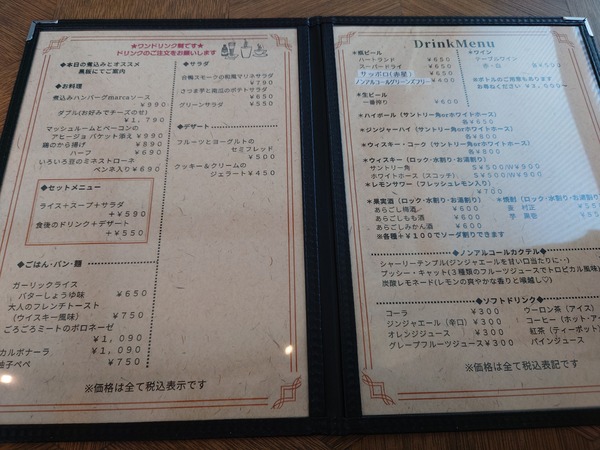 ★ワンドリンク制です★
ドリンクのご注文をお願いします
◆本日の煮込みとオススメ
黒板にてご案内
◆お料理
煮込みハンバーグmarcaソース
￥９９０
ダブル(お好みでチーズのせ)
￥１，７９０
マッシュルームとベーコンの
アヒージョ バケット添え ￥９９０
鶏のから揚げ ￥８９０
ハーフ ￥６９０
いろいろ豆のミネストローネ
ペンネ入り￥６９０
◆セットメニュー
ライス＋スープ＋サラダ
＋￥５９０
食後のドリンク＋デザート
＋￥５５０
◆ごはん・パン・麺
ガーリックライス
バターしょうゆ味 ￥６５０
大人のフレンチトースト
(ウイスキー風味) ￥７５０
ごろごろミートのボロネーゼ
￥１，０９０
カルボナーラ ￥１，０９０
柚子ペペ ￥７５０
◆サラダ
合鴨スモークの和風マリネサラダ
￥７９０
さつま芋と南瓜のポテトサラダ
￥６５０
グリーンサラダ ￥５５０
◆デザート
フルーツとヨーグルトの
セミフレッド
￥５００
クッキー＆クリームの
ジェラート￥４５０
※価格は全て税込表示です
DrinkMenu
＊瓶ビール
ハートランド ￥６５０
スーパードライ ￥６５０
サッポロ(赤星) ￥６５０
ノンアルコールグリーンズフリー ￥４００
＊生ビール
一番搾り ￥６００
＊ワイン
テーブルワイン
赤・白
※ボトルのご用意もあります
お尋ねください ￥２，０００～
＊ハイボール (サントリー角orホワイトホース)
各￥６５０
＊ジンジャーハイ (サントリー角orホワイトホース)
各￥８００
＊ウィスキー・コーク (サントリー角orホワイトホース)
各￥８００
＊ウィスキー (ロック・水割り・お湯割り)
サントリー角 S￥500/W￥900
ホワイトホース (スコッチ) S￥500/W￥900
＊レモンサワー (フレッシュレモン入り)
￥７００
＊果実酒 (ロック・水割り・お湯割り)
あらごし梅酒 ￥６００
あらごしもも酒 ￥６００
あらごしみかん酒 ￥６００
※各種＋￥１００でソーダ割りできます
＊焼酎 (ロック・水割り・お湯割り)
◆ノンアルコールカクテル◆
シャーリーテンプル(ジンジャエールを甘い口当たりに‥)
プッシー・キャット(３種類のフルーツジュースでトロピカル風味)
炭酸レモネード(レモンの爽やかな香りと喉越し♡)
◆ソフトドリンク◆
コーラ ￥３００
ジンジャエール (辛口) ￥３００
オレンジジュース ￥３００
グレープフルーツジュース￥３００
ウーロン茶 (アイス)
コーヒー (ホット・ア
紅茶 (ティーポット)
パインジュース
※価格は全て税込表記です